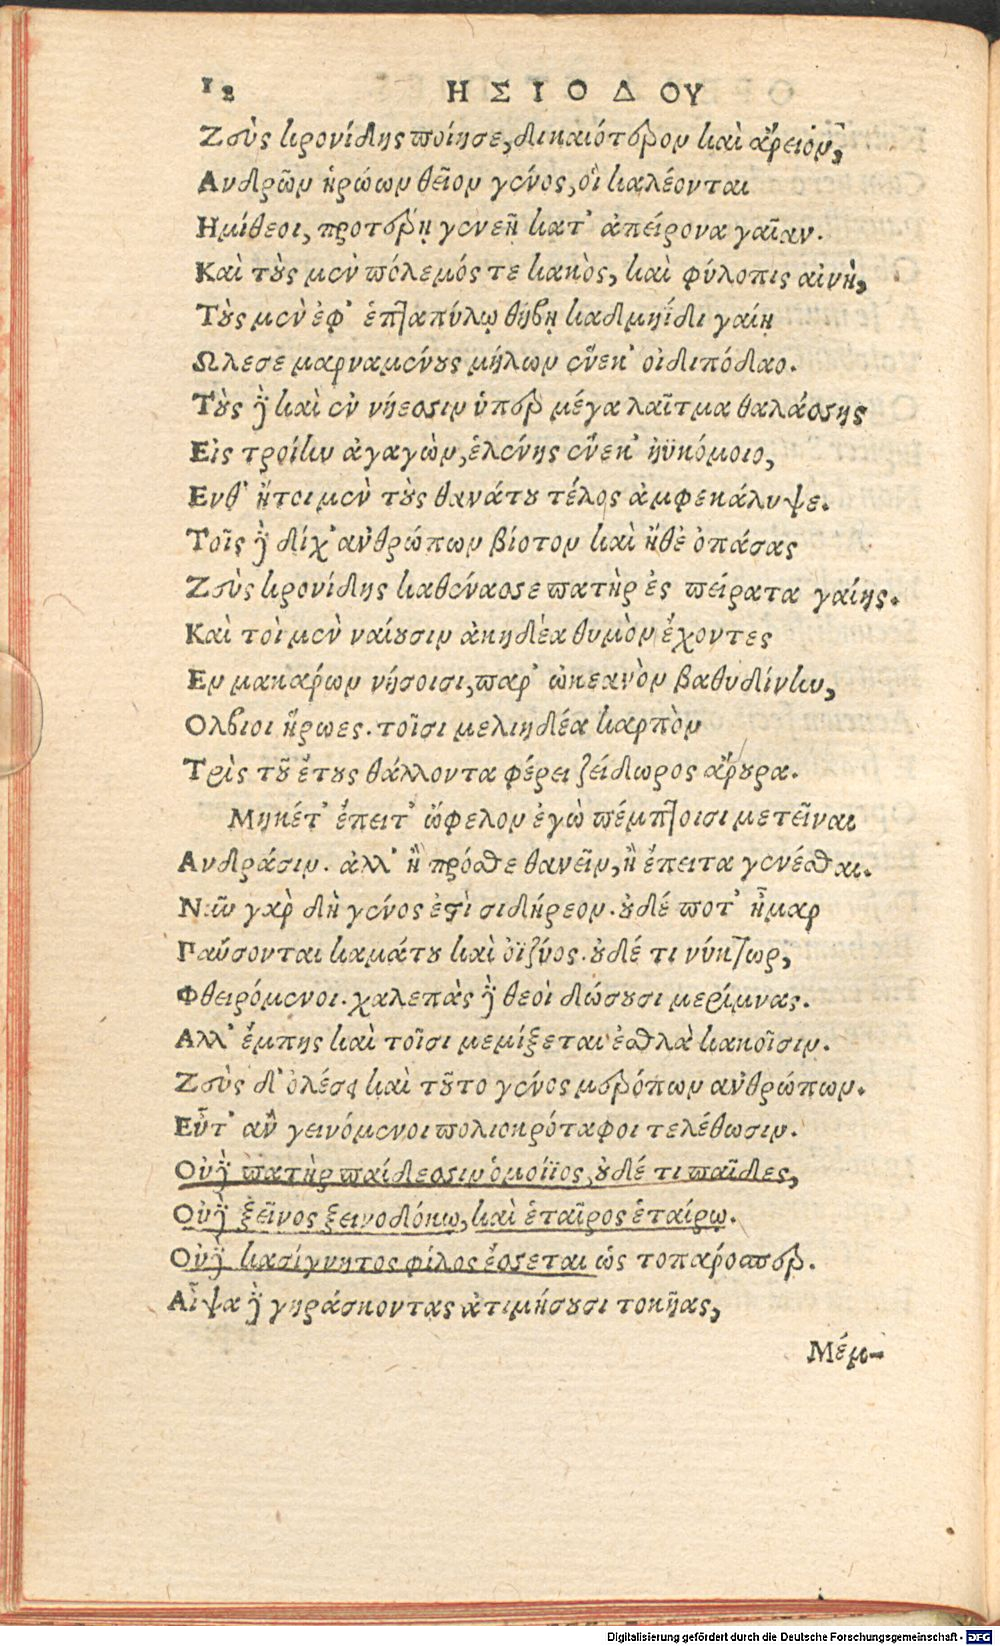 12 ΗΣΙΟΔΟΥ
Ζεὺς κρονίδης ποίησε, δικαιότερον καὶ ἄρειον,
Ανδρῶν ἡρώων θεῖον γένος, οἳ καλέονται
Ημίθεοι, προτέρῃ γενεῇ κατ' ἀπείρονα γαῖαν.
Καὶ τοὺς μὲν πόλεμός τε κακὸς, καὶ φύλοπις αἰνὴ,
Τοὺς μὲν ἐφ' ἑπταπύλῳ θήβῃ καδμηΐδι γαίῃ
Ωλεσε μαρναμένους μήλων ἕνεκ' οἰδιπόδαο.
Τοὺς δὲ καὶ ἐν νήεσσιν ὑπὲρ μέγα λαῖτμα θαλάσσης
Εἰς τροίην ἀγαγὼν, ἑλένης ἕνεκ' ἠϋκόμοιο,
Ενθ' ἤτοι μὲν τοὺς θανάτου τέλος ἀμφεκάλυψε.
Τοῖς δὲ δίχ' ἀνθρώπων βίοτον καὶ ἤθε' ὀπάσας
Ζεὺς κρονίδης κατένασσε πατὴρ ἐς πείρατα γαίης.
Καὶ τοὶ μὲν ναίουσιν ἀκηδέα θυμὸν ἔχοντες
Εν μακάρων νήσοισι, παρ' ὠκεανὸν βαθυδίνην,
Ολβιοι ἥρωες. τοῖσι μελιηδέα καρπὸν
Τρὶς τοῦ ἔτους θάλλοντα φέρει ζείδωρος ἄρουρα.
Μηκέτ' ἔπειτ' ὤφελον ἐγὼ πέμπτοισι μετεῖναι
Ανδράσιν. ἀλλ' ἢ πρόσθε θανεῖν, ἢ ἔπειτα γενέσθαι.
Νῦν γὰρ δὴ γένος ἐστὶ σιδήρεον. οὐδέ ποτ' ἦμαρ
Παύσονται καμάτου καὶ ὀϊζύος. οὐδέ τι νύκτωρ,
Φθειρόμενοι. χαλεπὰς δὲ θεοὶ δώσουσι μερίμνας.
Αλλ' ἔμπης καὶ τοῖσι μεμίξεται ἐσθλὰ κακοῖσιν.
Ζεὺς δ' ὀλέσει καὶ τοῦτο γένος μερόπων ἀνθρώπων.
Εὖτ' ἂν γεινόμενοι πολιοκρόταφοι τελέθωσιν.
Οὐδὲ πατὴρ παίδεσσιν ὁμοίϊος, οὐδέ τι παῖδες,
Οὐδὲ ξεῖνος ξεινοδόκῳ, καὶ ἑταῖρος ἑταίρῳ.
Οὐδὲ κασίγνητος φίλος ἔσσεται ὡς τοπάροσπερ.
Αἶψα δὲ γηράσκοντας ἀτιμήσουσι τοκῆας,
Μέμ-
Digitalisierung gefördert durch die Deutsche Forschungsgemeinschaft - DFG